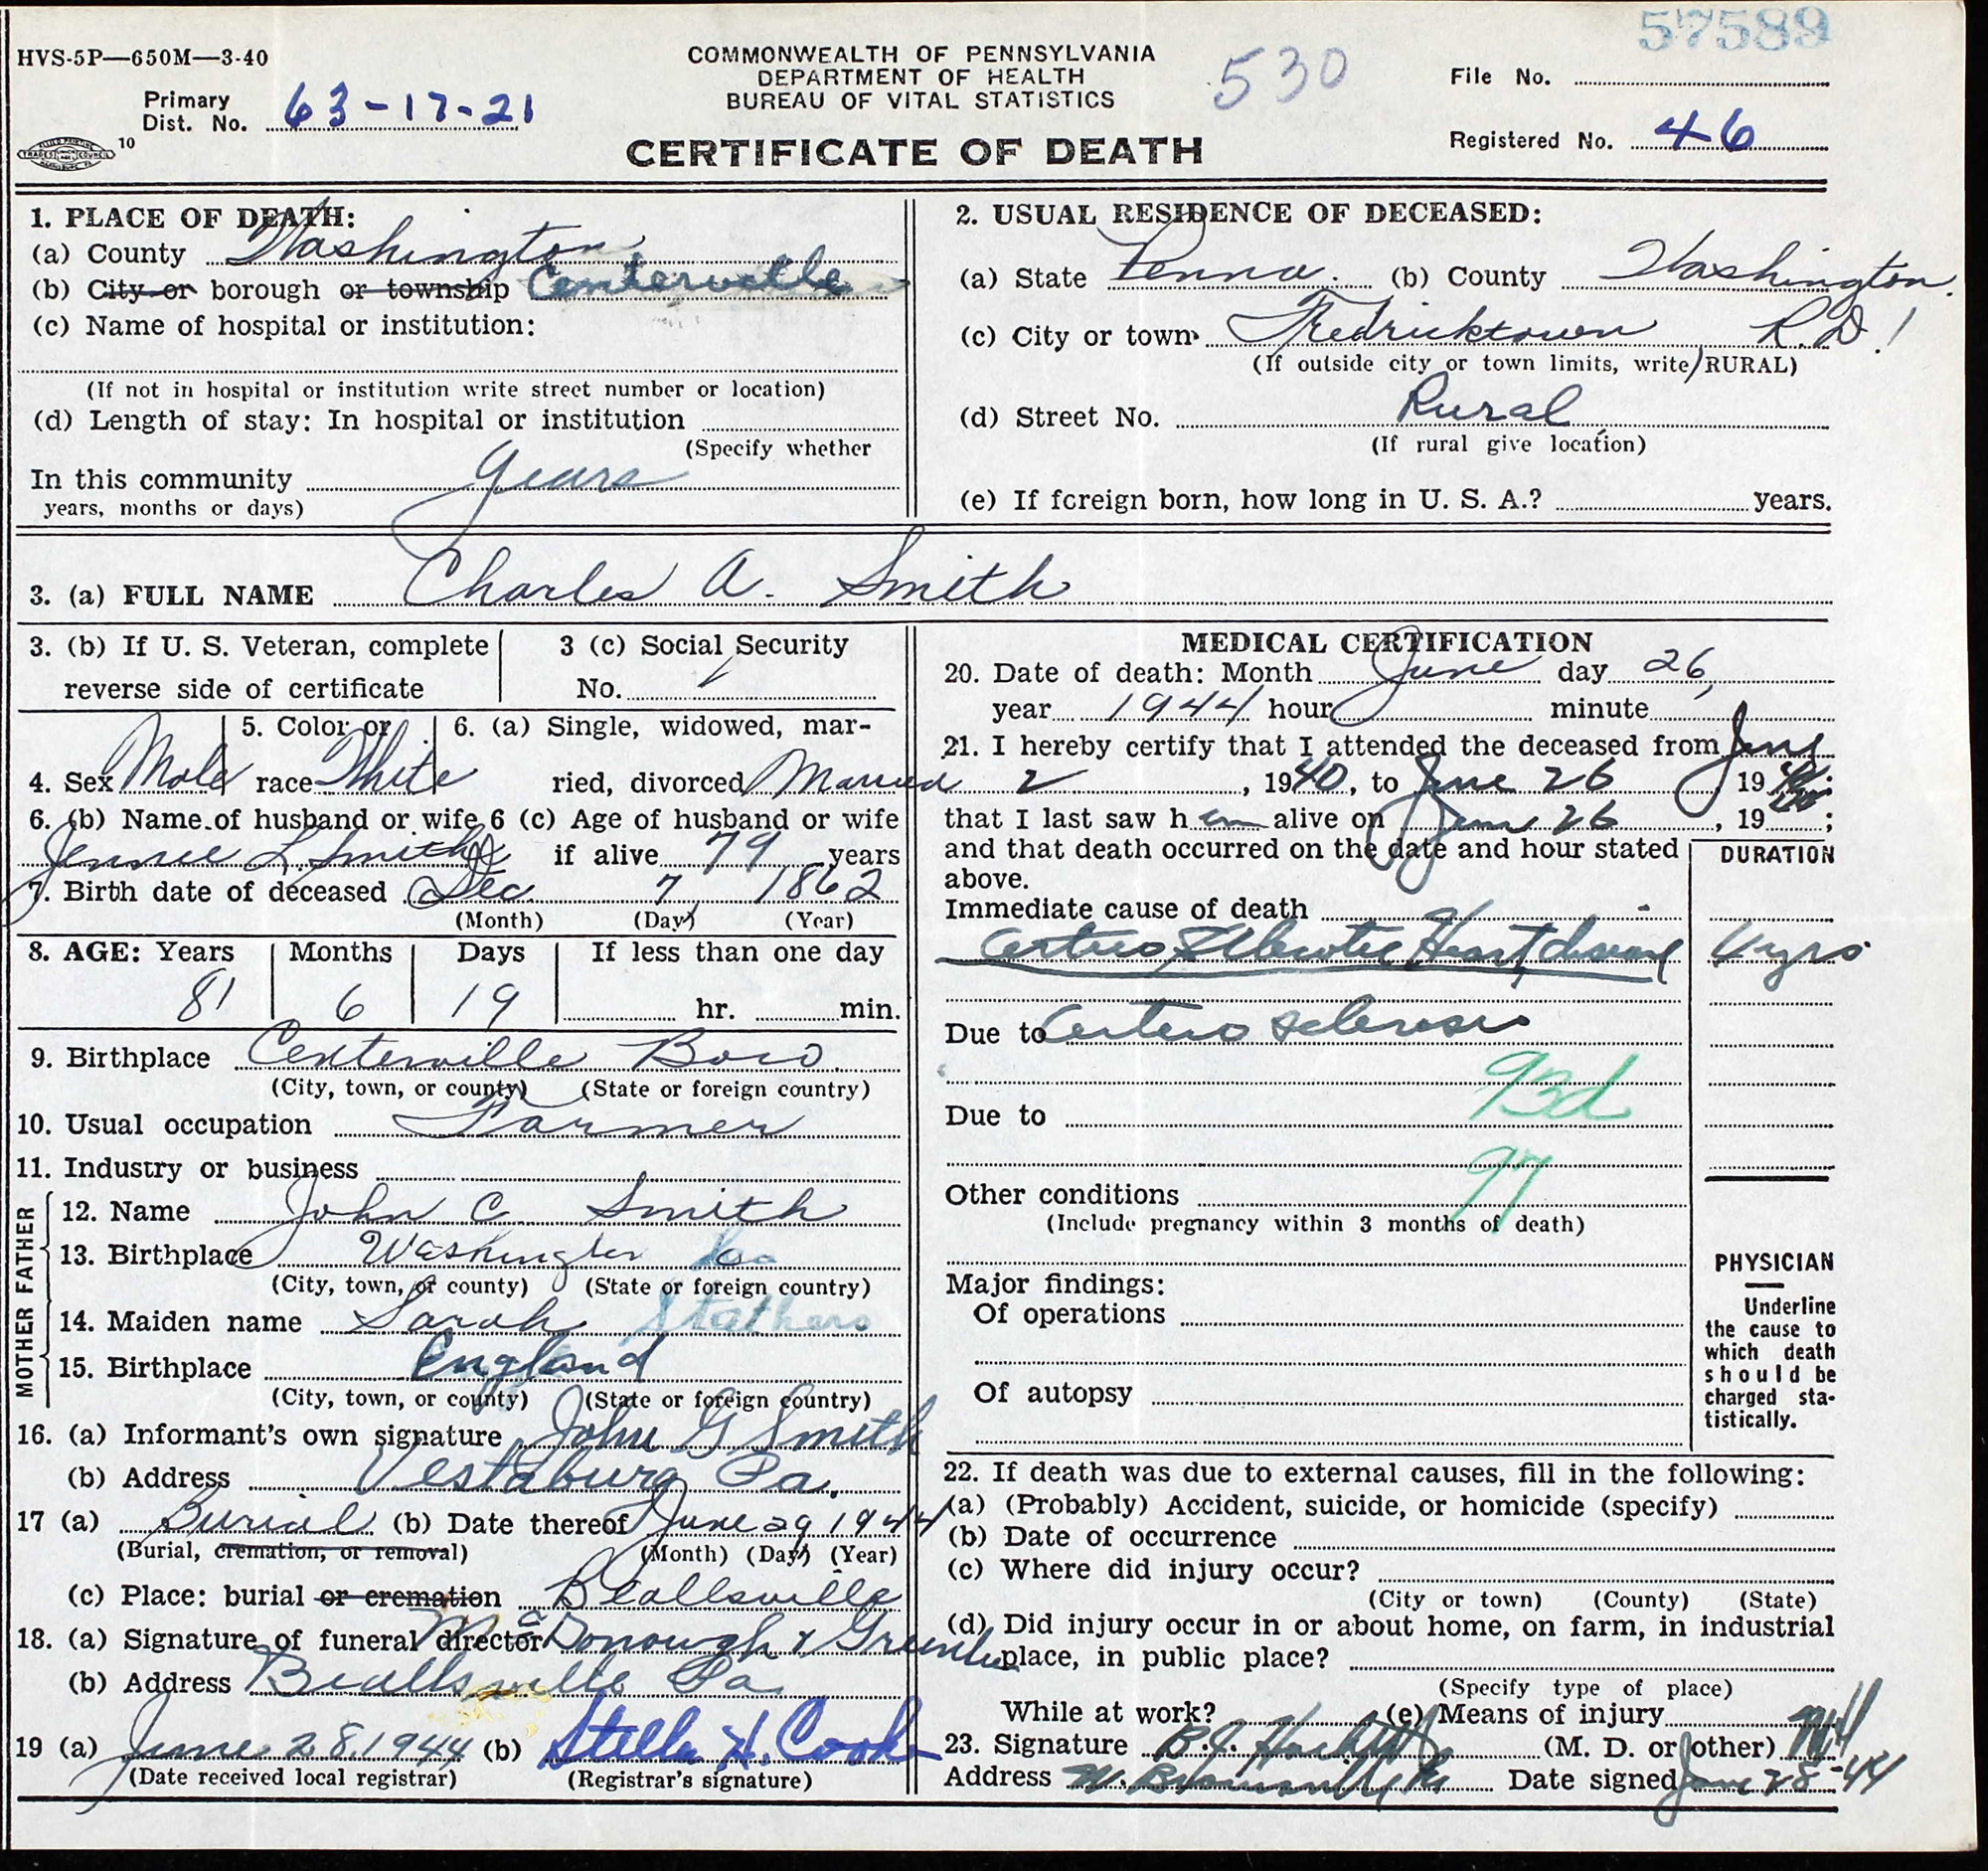 HVS-5P—650M—3-40
COMMONWEALTH OF PENNSYLVANIA
DEPARTMENT OF HEALTH
BUREAU OF VITAL STATISTICS
CERTIFICATE OF DEATH
530
57589
File No.
Primary Dist. No. 63-17-21
10
Registered No. 46
1. PLACE OF DEATH:
(a) County Washington
(b) City or borough or township Centerville
(c) Name of hospital or institution:
(If not in hospital or institution write street number or location)
(d) Length of stay: In hospital or institution
(Specify whether
In this community years
years, months or days)
2. USUAL RESIDENCE OF DECEASED:
(a) State Penna. (b) County Washington.
(c) City or town Fredricktown R.D. 1
(If outside city or town limits, write RURAL)
(d) Street No. Rural
(If rural give location)
(e) If foreign born, how long in U. S. A.? years.
3. (a) FULL NAME Charles A. Smith
3. (b) If U. S. Veteran, complete
reverse side of certificate
3 (c) Social Security
No.
4. Sex Male 5. Color or race White
6. (a) Single, widowed, mar-
ried, divorced Married
6. (b) Name of husband or wife Jennie L. Smith
6 (c) Age of husband or wife
if alive 79 years
7. Birth date of deceased Dec. 7 1862
(Month) (Day) (Year)
8. AGE: Years Months Days If less than one day
81 6 19 hr. min.
9. Birthplace Centerville Boro.
(City, town, or county) (State or foreign country)
10. Usual occupation Farmer
11. Industry or business
FATHER
12. Name John C Smith
13. Birthplace Washington Co
(City, town, or county) (State or foreign country)
MOTHER
14. Maiden name Sarah Stathers
15. Birthplace England
(City, town, or county) (State or foreign country)
16. (a) Informant's own signature John G Smith
(b) Address Vestaburg Pa.
17 (a) Burial (b) Date thereof June 29 1944
(Burial, cremation, or removal) (Month) (Day) (Year)
(c) Place: burial or cremation Beallsville
18. (a) Signature of funeral director McDonough &
(b) Address Beallsville Pa.
19 (a) June 28, 1944 (b) Stella H. Cook
(Date received local registrar) (Registrar's signature)
MEDICAL CERTIFICATION
20. Date of death: Month June day 26,
year 1944 hour minute
21. I hereby certify that I attended the deceased from June
2, 1940, to June 26 19 ;
that I last saw h im alive on June 26, 19 ;
and that death occurred on the date and hour stated
above.
DURATION
Immediate cause of death
Arterio Sclerotic Heart disease 4 yrs
Due to Arterio sclerosis
93d
Due to
97
Other conditions
(Include pregnancy within 3 months of death)
Major findings:
Of operations
Of autopsy
PHYSICIAN
Underline
the cause to
which death
should be
charged sta-
tistically.
22. If death was due to external causes, fill in the following:
(a) (Probably) Accident, suicide, or homicide (specify)
(b) Date of occurrence
(c) Where did injury occur?
(City or town) (County) (State)
(d) Did injury occur in or about home, on farm, in industrial
place, in public place?
(Specify type of place)
While at work? (e) Means of injury
23. Signature (M. D. or other) MD
Address Date signed June 28-44